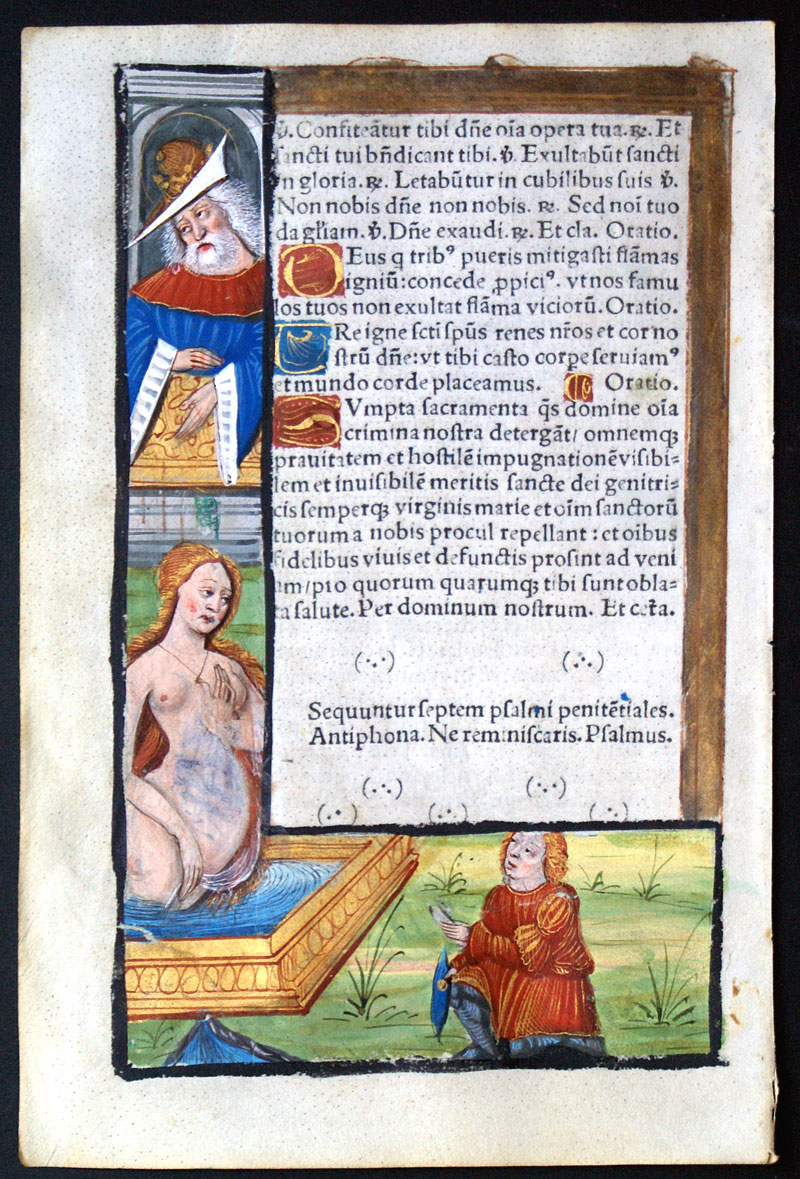 ℣. Confiteãtur tibi dñe oĩa opera tua. ℟. Et
sancti tui bñdicant tibi. ℣. Exultabũt sancti
in gloria. ℟. Letabũtur in cubilibus suis ℣.
Non nobis dñe non nobis. ℟. Sed noĩ tuo
da gl̃iam. ℣. Dñe exaudi. ℟. Et cla. Oratio.
DEus q tribꝰ pueris mitigasti flãmas
igniũ: concede ꝓpiciꝰ. vt nos famu
los tuos non exultat flãma viciorũ. Oratio.
URe igne sctĩ spũs renes nr̃os et cor no
strũ dñe: vt tibi casto corpe seruiamꝰ
et mundo corde placeamus. Oratio.
SVmpta sacramenta q̃s domine oĩa
crimina nostra detergãt/ omnemqꝫ
prauitatem et hostilẽ impugnationẽ visibi⸗
lem et inuisibilẽ meritis sancte dei genitri⸗
cis semperqꝫ virginis marie et oĩm sanctorũ
tuorum a nobis procul repellant: et oibus
fidelibus viuis et defunctis prosint ad veni
am/ pro quorum quarumqꝫ tibi sunt obla⸗
ta salute. Per dominum nostrum. Et cet̃a.
Sequuntur septem psalmi penitẽtiales.
Antiphona. Ne reminiscaris. Psalmus.